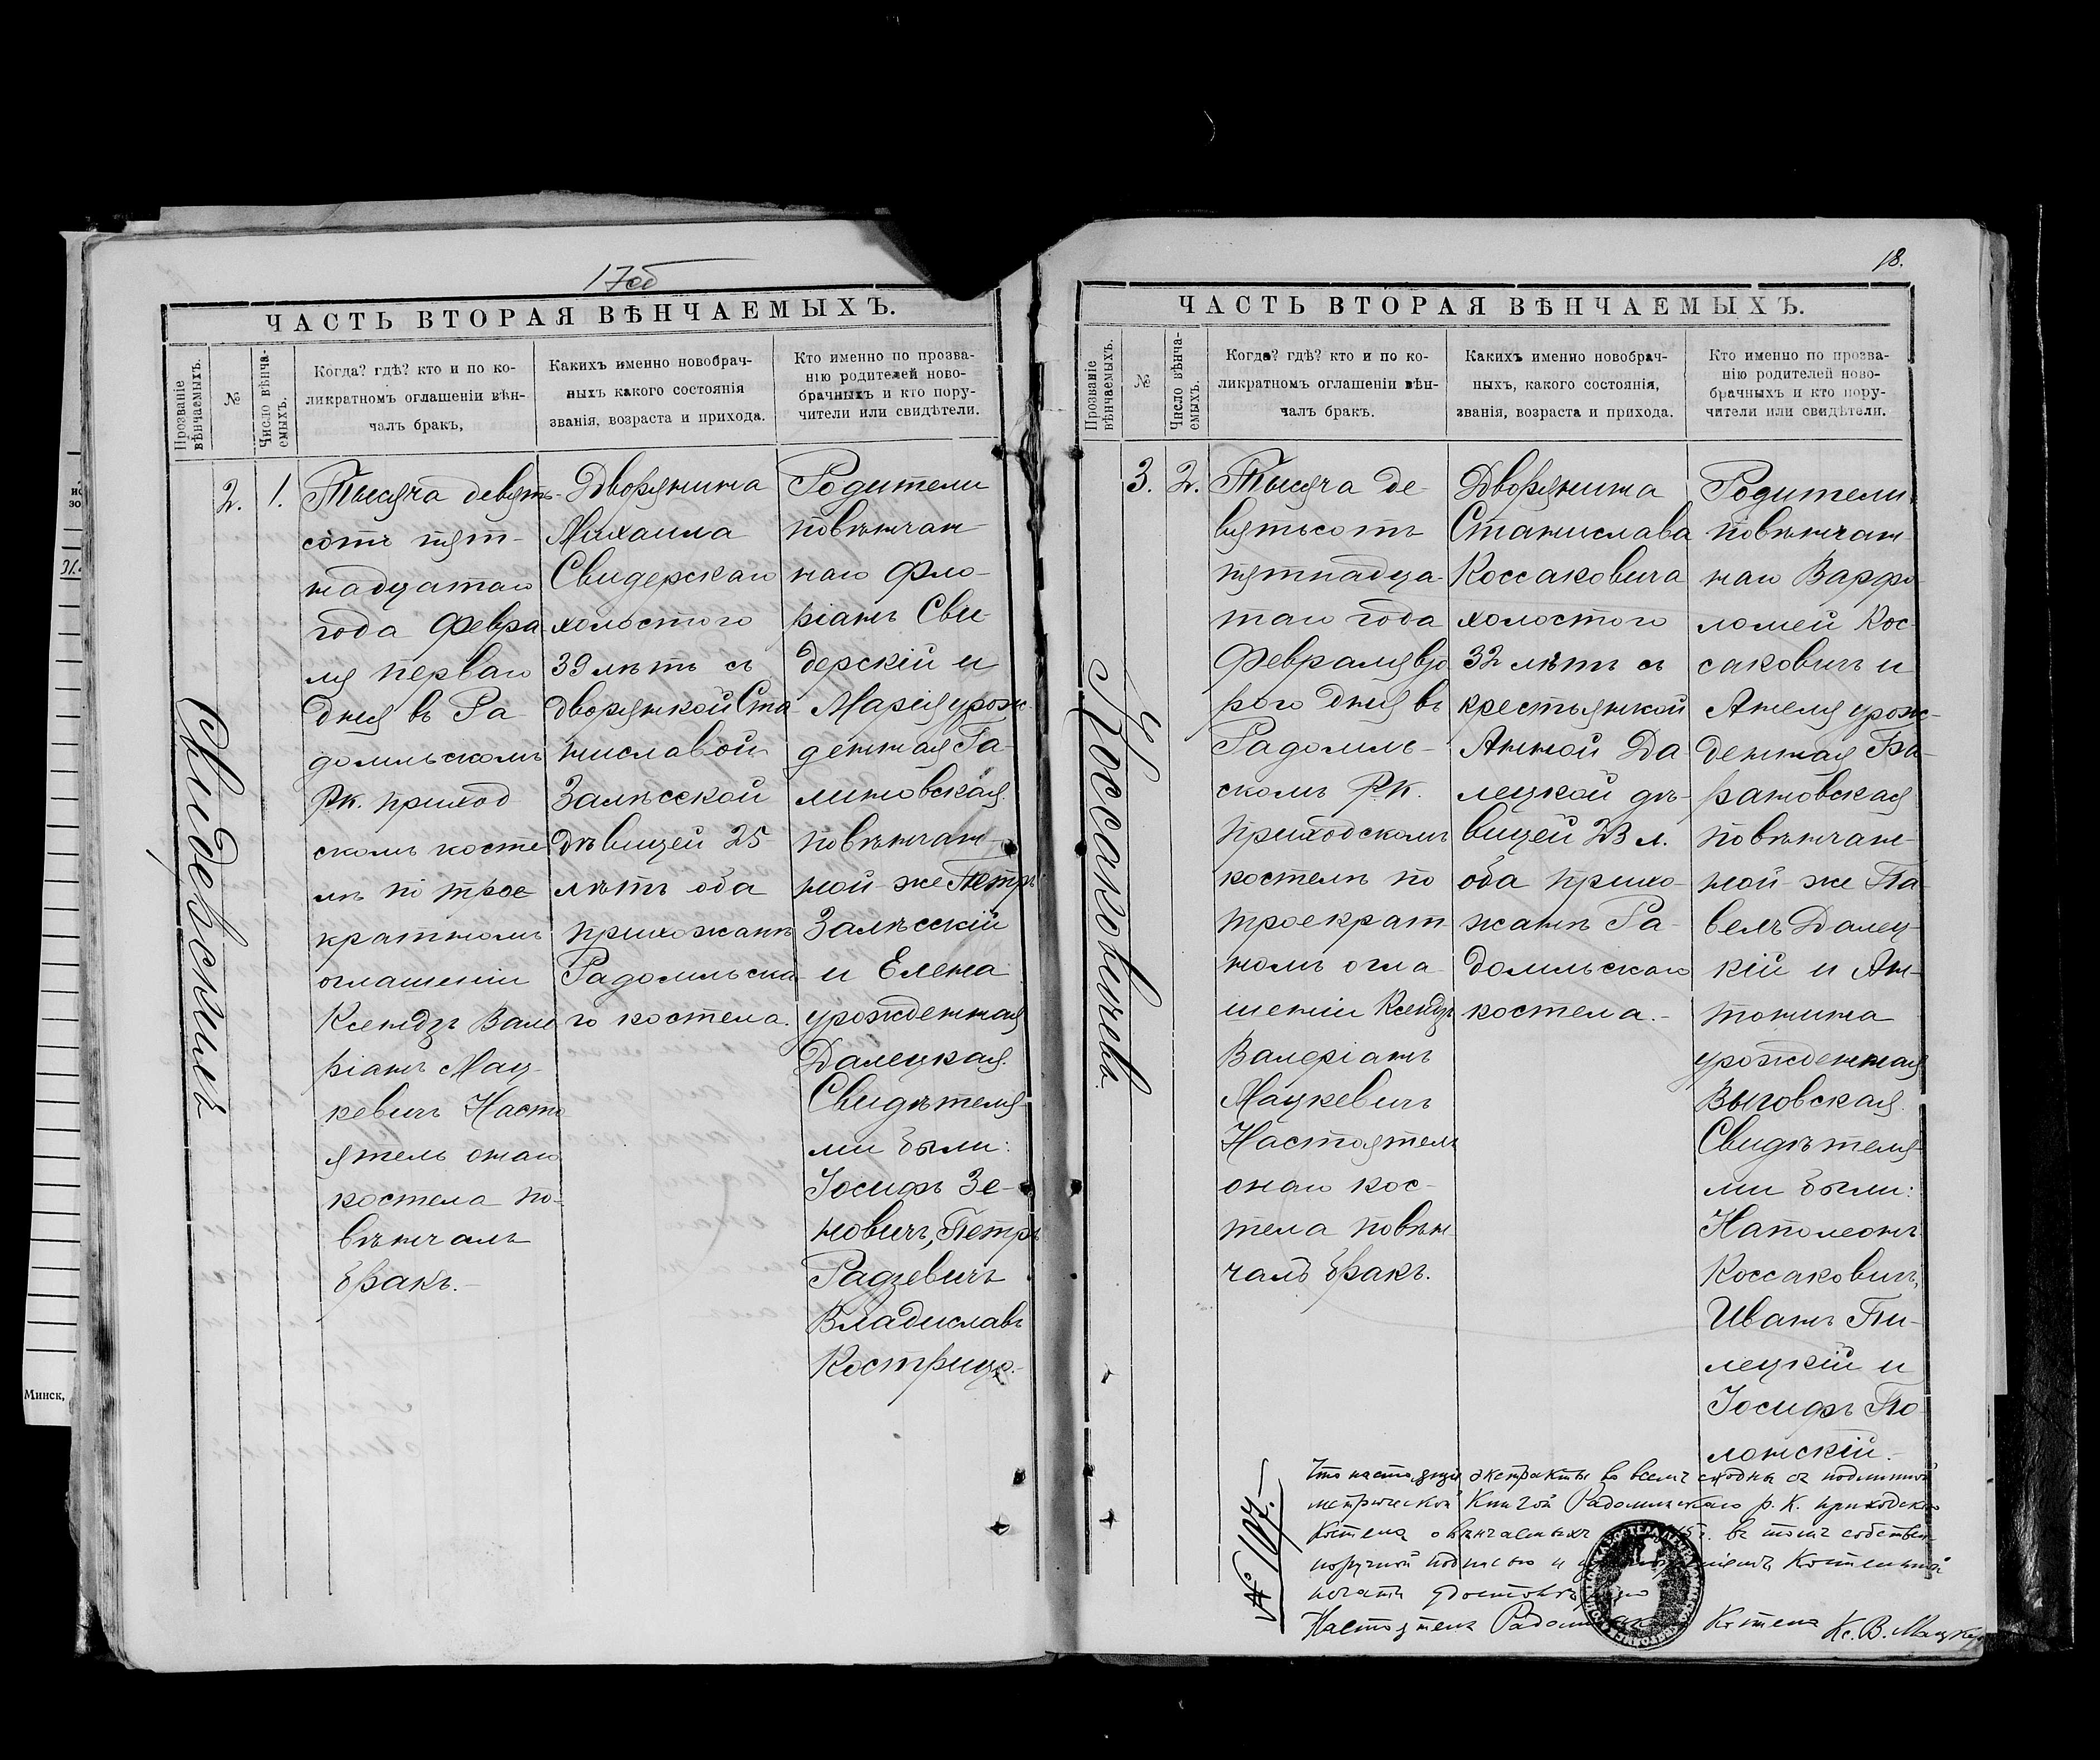 17об
ЧАСТЬ ВТОРАЯ ВѢНЧАЕМЫХЪ.
Прозваніе
вѣнчаемыхъ.
№
Число вѣнча-
емыхъ.
Когда? гдѣ? кто и по ко-
ликратномъ оглашеніи вѣн-
чалъ бракъ,
Какихъ именно новобрач-
ныхъ какого состоянія
званія, возраста и прихода.
Кто именно по прозва-
нію родителей ново-
брачныхъ и кто пору-
чители или свидѣтели.
Свидерскихъ
2.
1.
Тысяча девять-
сотъ пят-
надцатаго
года Февра
ля перваго
дня въ Ра
домльскомъ
Р.к. приход
скомъ косте
лѣ по трое
кратномъ
оглашеніи
Ксендзъ Вале
ріанъ Мац-
кевичъ Насто
ятель онаго
костела по-
вѣнчалъ
бракъ.-
Дворянина
Михаила
Свидерскаго
холостого
39 лѣтъ съ
дворянкой Ста
ниславой
Залѣсской
дѣвицей 25
лѣтъ оба
прихожанъ
Радомльска-
го костела.
Родители
повѣнчан-
наго Фло-
ріанъ Сви-
дерскій и
Марія урож-
денная Га-
линовская
повѣнчан-
ной-же Петръ
Залѣсскій
и Елена
урожденная
Далецкая.
Свидѣтеля-
ми были:
Іосифъ Зе-
новичъ, Петръ
Радзевичъ
Владиславъ
Кострицо.
18.
ЧАСТЬ ВТОРАЯ ВѢНЧАЕМЫХЪ.
Прозваніе
вѣнчаемыхъ.
№
Число вѣнча-
емыхъ.
Когда? гдѣ? кто и по ко-
ликратномъ оглашеніи вѣн-
чалъ бракъ.
Какихъ именно новобрач-
ныхъ, какого состоянія,
званія, возраста и прихода.
Кто именно по прозва-
нію родителей ново-
брачныхъ и кто пору-
чители или свидѣтели.
Коссаковичевъ.
3.
2.
Тысяча де-
вятьсотъ
пятнадца-
таго года
Февраля вто
рого дня въ
Радомль-
скомъ Р.К.
приходскомъ
костелѣ по
троекрат-
номъ огла-
шеніи Ксендзъ
Валеріанъ
Мацкевичъ
Настоятель
онаго кос-
тела повѣн
чалъ бракъ.
Дворянина
Станислава
Коссаковича
холостого
32 лѣтъ съ
крестьянкой
Анной Да
лецкой дѣ-
вицей 23 л.
оба прихо-
жанъ Ра-
домльскаго
костела.-
Родители
повѣнчан-
наго Варфо
ломей Кос-
саковичъ и
Анеля урож-
денная Ба-
рановская
повѣнчан-
ной-же Па-
велъ Далец-
кій и Ан-
тонина
урожденная
Выговская.
Свидѣтеля-
ми были:
Наполеонъ
Коссаковичъ,
Иванъ Пи-
лецкій и
Іосифъ По-
лонскій.
№ 107.
Что настоящій экстрактъ во всемъ сходны съ подлинной
метрической Книгой Радомльскаго р. К. приходскаго
Костела о вѣнчаемыхъ 15г. въ томъ собствен-
норучной подписью и Костельной
печати удостовѣряю
Настоятель Костела Кс. В. Мацкевичъ
Минск,